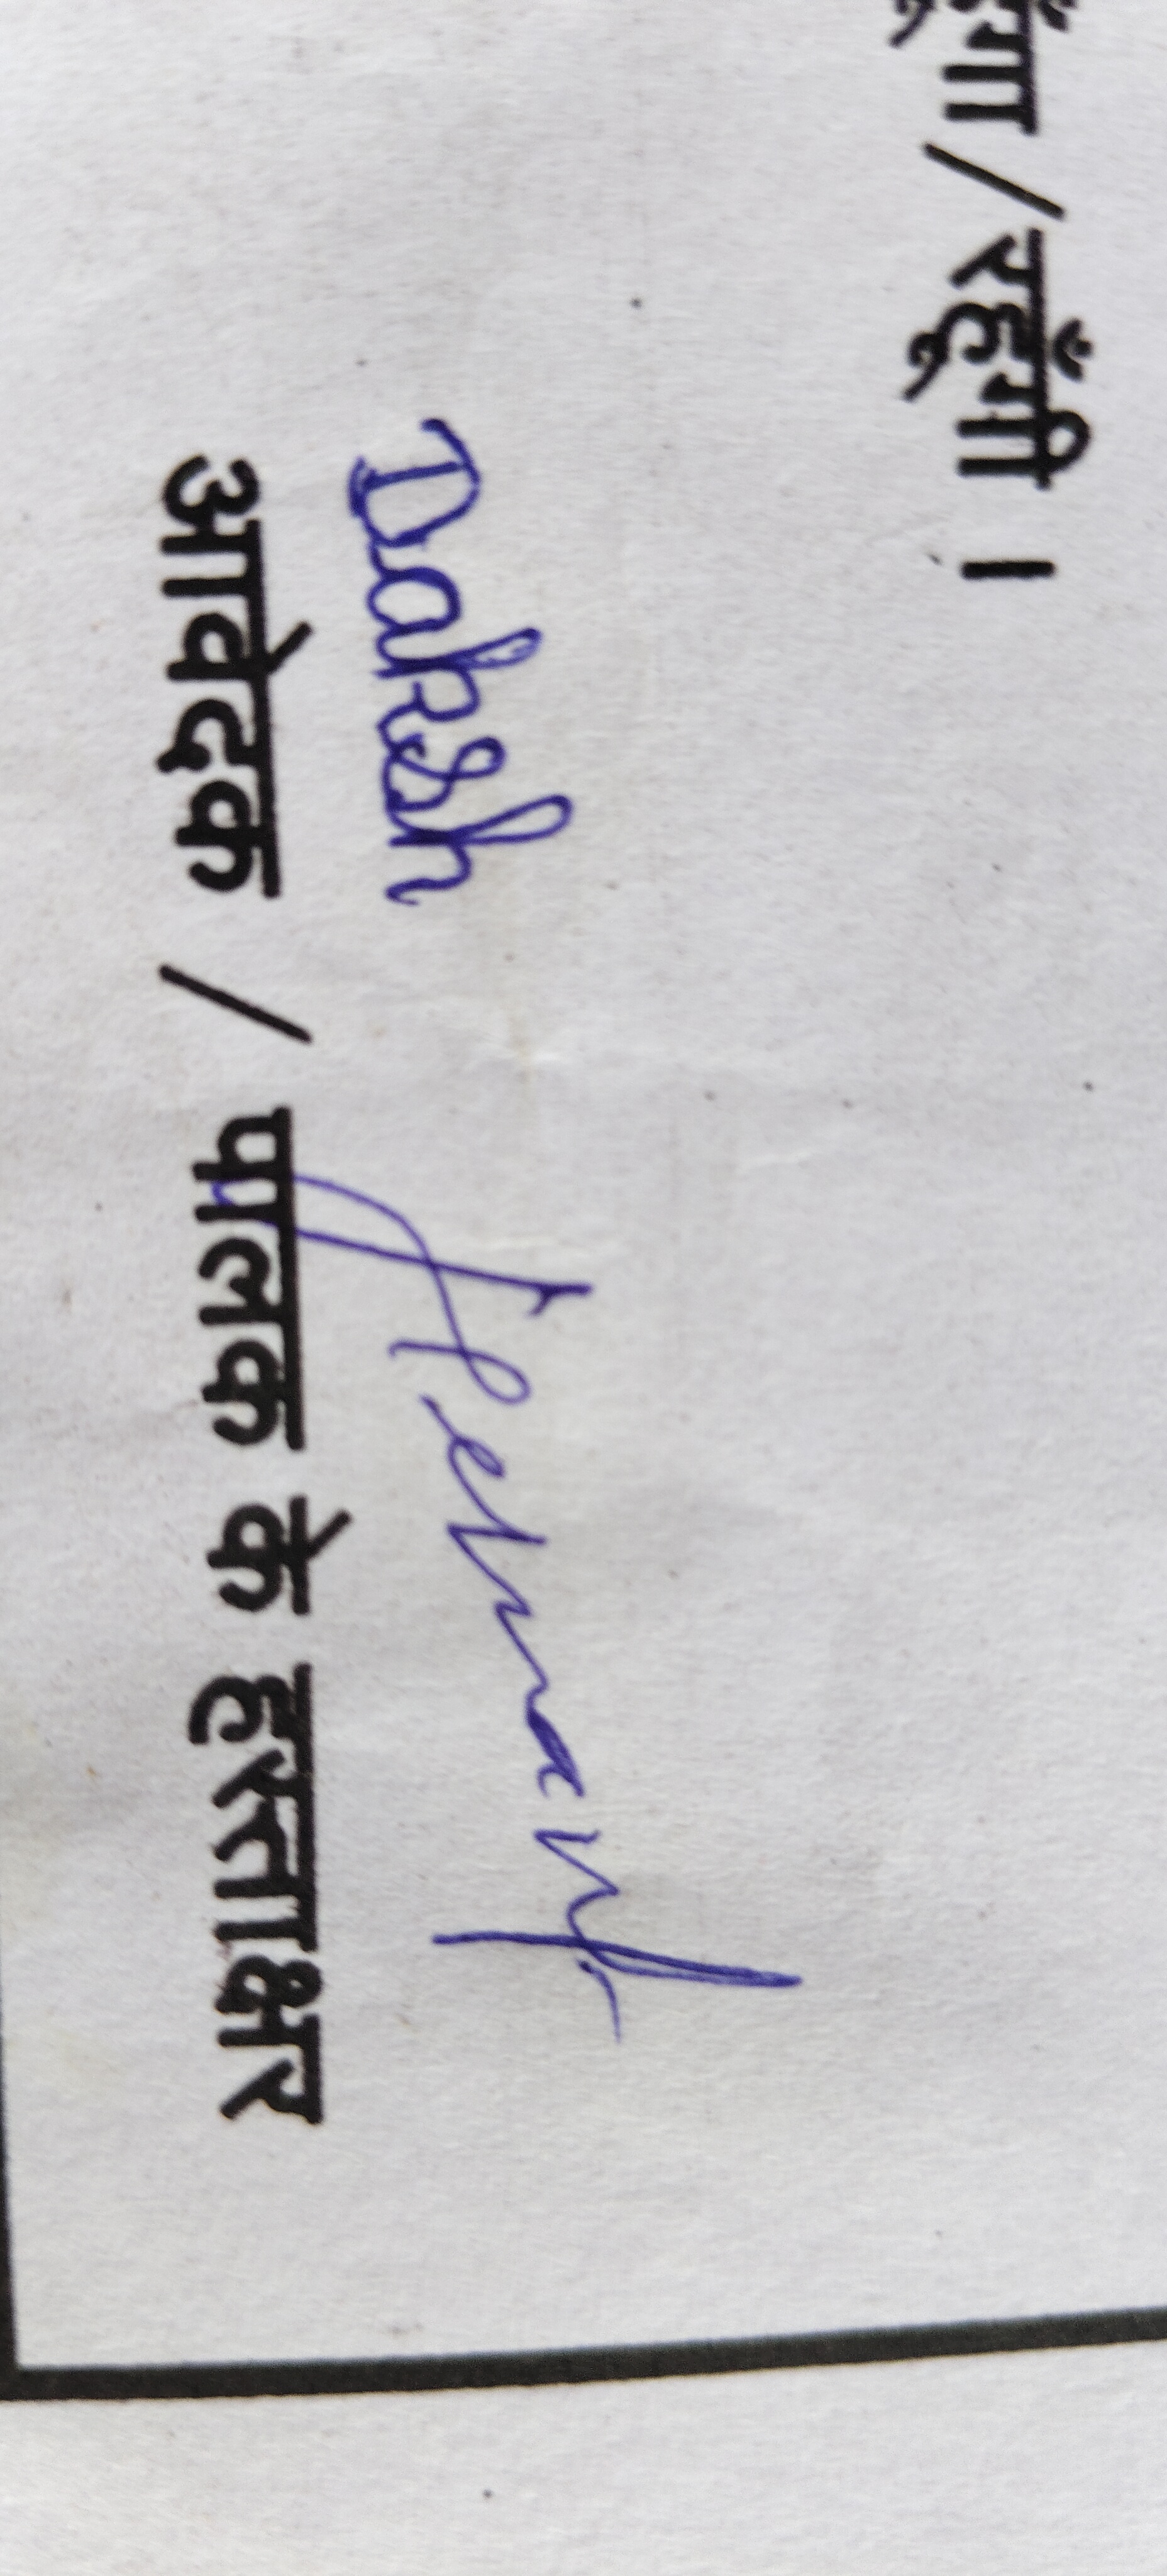 रहूँगा / रहूँगी ।
Daksh Hemant
आवेदक / पालक के हस्ताक्षर